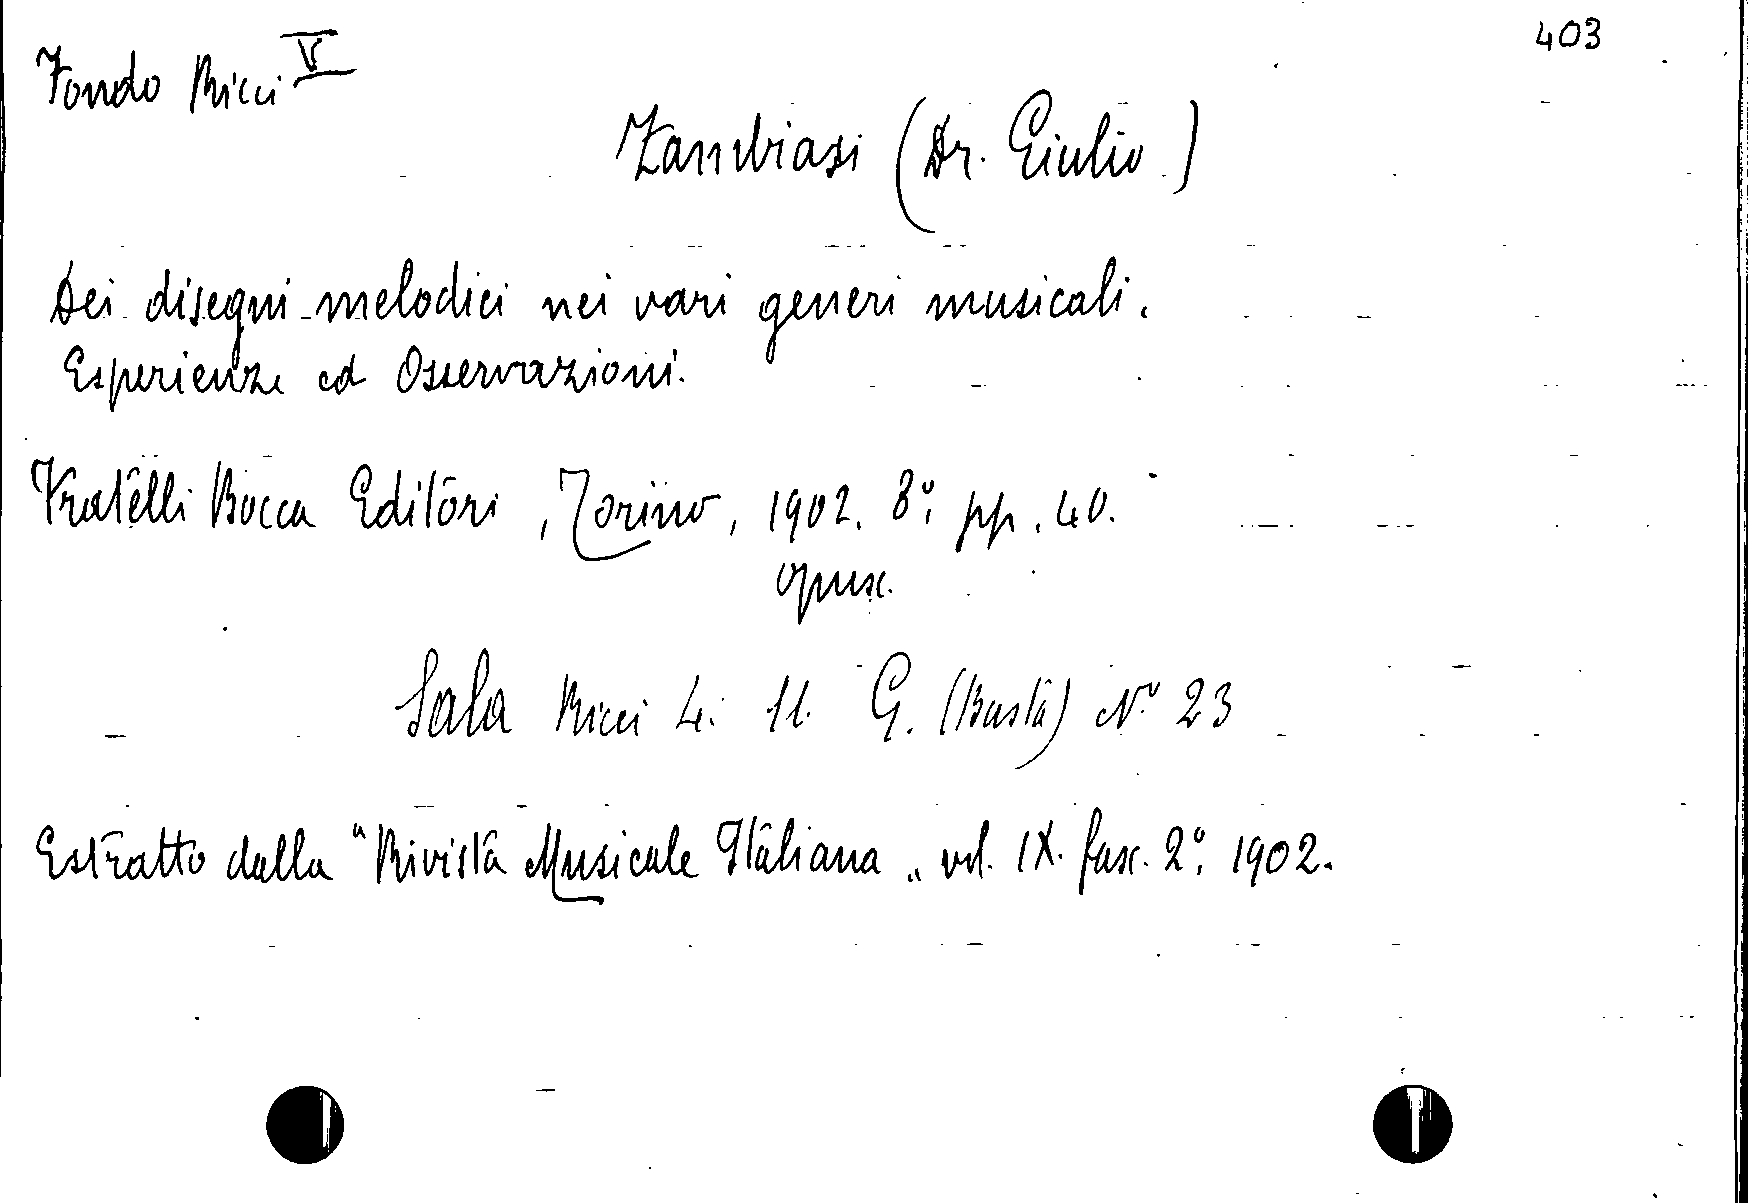 403
Fondo Ricci V
Zambiasi (Dr. Giulio)
Dei disegni melodici nei vari generi musicali.
Esperienze ed Osservazioni.
Fratelli Bocca Editori, Torino, 1902. 8º, pp. 40.
opusc.
Sala Ricci 4. 11. G. (Busta) Nº 23
Estratto dalla "Rivista Musicale Italiana„ vol. IX. fasc. 2º, 1902.